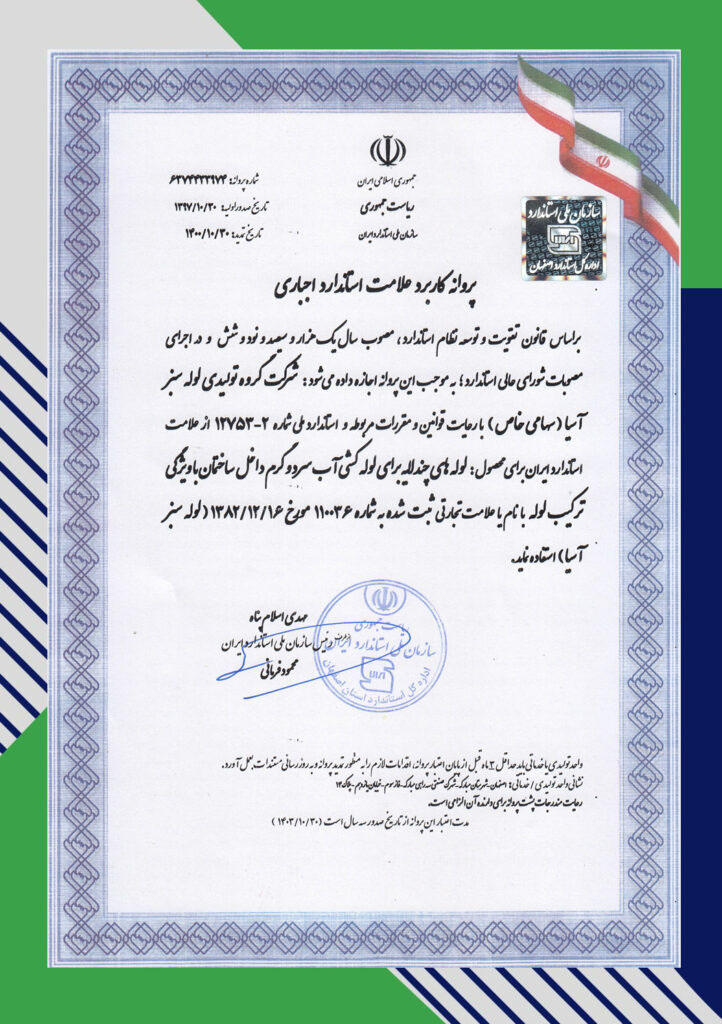 جمهوری اسلامی ایران
ریاست جمهوری
سازمان ملی استاندارد ایران
شماره پروانه: ۶۳۷۴۴۳۳۹۷۴
تاریخ صدور اولیه: ۱۳۹۷/۱۰/۳۰
تاریخ تمدید: ۱۴۰۰/۱۰/۳۰
سازمان ملی استاندارد
اداره کل استاندارد اصفهان
پروانه کاربرد علامت استاندارد اجباری
براساس قانون تقویت و توسعه نظام استاندارد، مصوب سال یک هزار و سیصد و نود و شش و در اجرای
مصوبات شورای عالی استاندارد؛ به موجب این پروانه اجازه داده می‌شود: شرکت گروه تولیدی لوله سبز
آسیا (سهامی خاص) با رعایت قوانین و مقررات مربوطه و استاندارد ملی شماره ۲-۱۲۷۵۳ از علامت
استاندارد ایران برای محصول: لوله های چندلایه برای لوله کشی آب سرد و گرم داخل ساختمان با ویژگی
ترکیب لوله با نام یا علامت تجارتی ثبت شده به شماره ۱۱۰۰۳۶ مورخ ۱۳۸۲/۱۲/۱۶ (لوله سبز
آسیا) استفاده نماید.
مهدی اسلام پناه
رئیس سازمان ملی استاندارد ایران
محمود فرمانی
ریاست جمهوری
سازمان ملی استاندارد ایران
اداره کل استاندارد استان اصفهان
واحد تولیدی یا خدماتی باید حداقل ۳ ماه قبل از پایان اعتبار پروانه، اقدامات لازم را به منظور تمدید پروانه و به روز رسانی مستندات بعمل آورد.
نشانی واحد تولیدی / خدماتی: اصفهان-شهرستان مبارکه-شهرک صنعتی سه راهی مبارکه-فاز سوم-خیابان یازدهم-پلاک ۱۳
رعایت مندرجات پشت پروانه برای دارنده آن الزامی است.
مدت اعتبار این پروانه از تاریخ صدور سه سال است (۱۴۰۳/۱۰/۳۰)